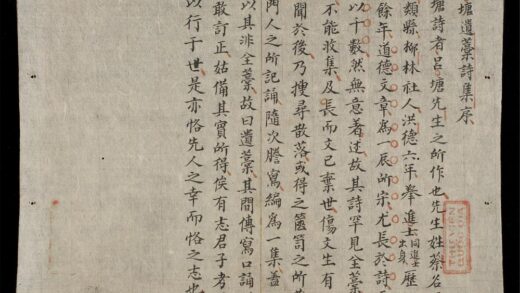 塘遺藁詩集序
塘詩者呂塘先生之所作也先生姓蔡名
類縣柳林社人洪德六年舉進士同進士出身歷
餘年道德文章爲一辰所宗尤長於詩
以十數然無意着述故其詩罕見全藁
不能收集及長而文已棄世傷文生有
聞於後乃搜尋散落或得之篋笥之所
两人之所記誦隨次謄寫編爲一集盖
以其非全藁故曰遺藁其間傳寫口誦
敢訂正姑備其實所得俟有志君子考
以行于世是亦恪先人之幸而恪之志也